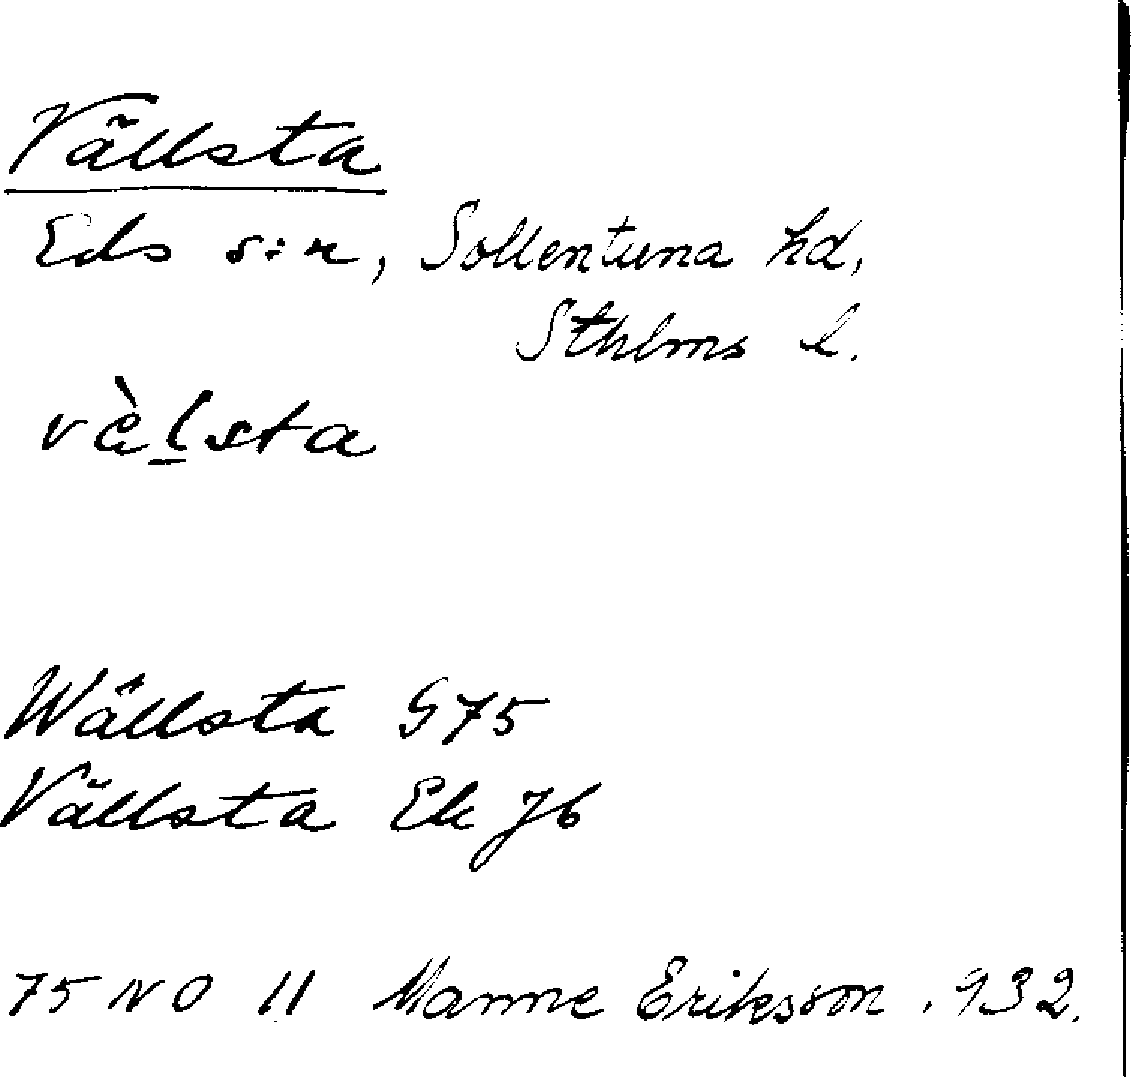 Vällsta
Eds s:n, Sollentuna hd,
Sthlms l.
vàl̲sta
Wällsta G75
Vällsta Ek Jb
75 NO 11 Manne Eriksson 1932.